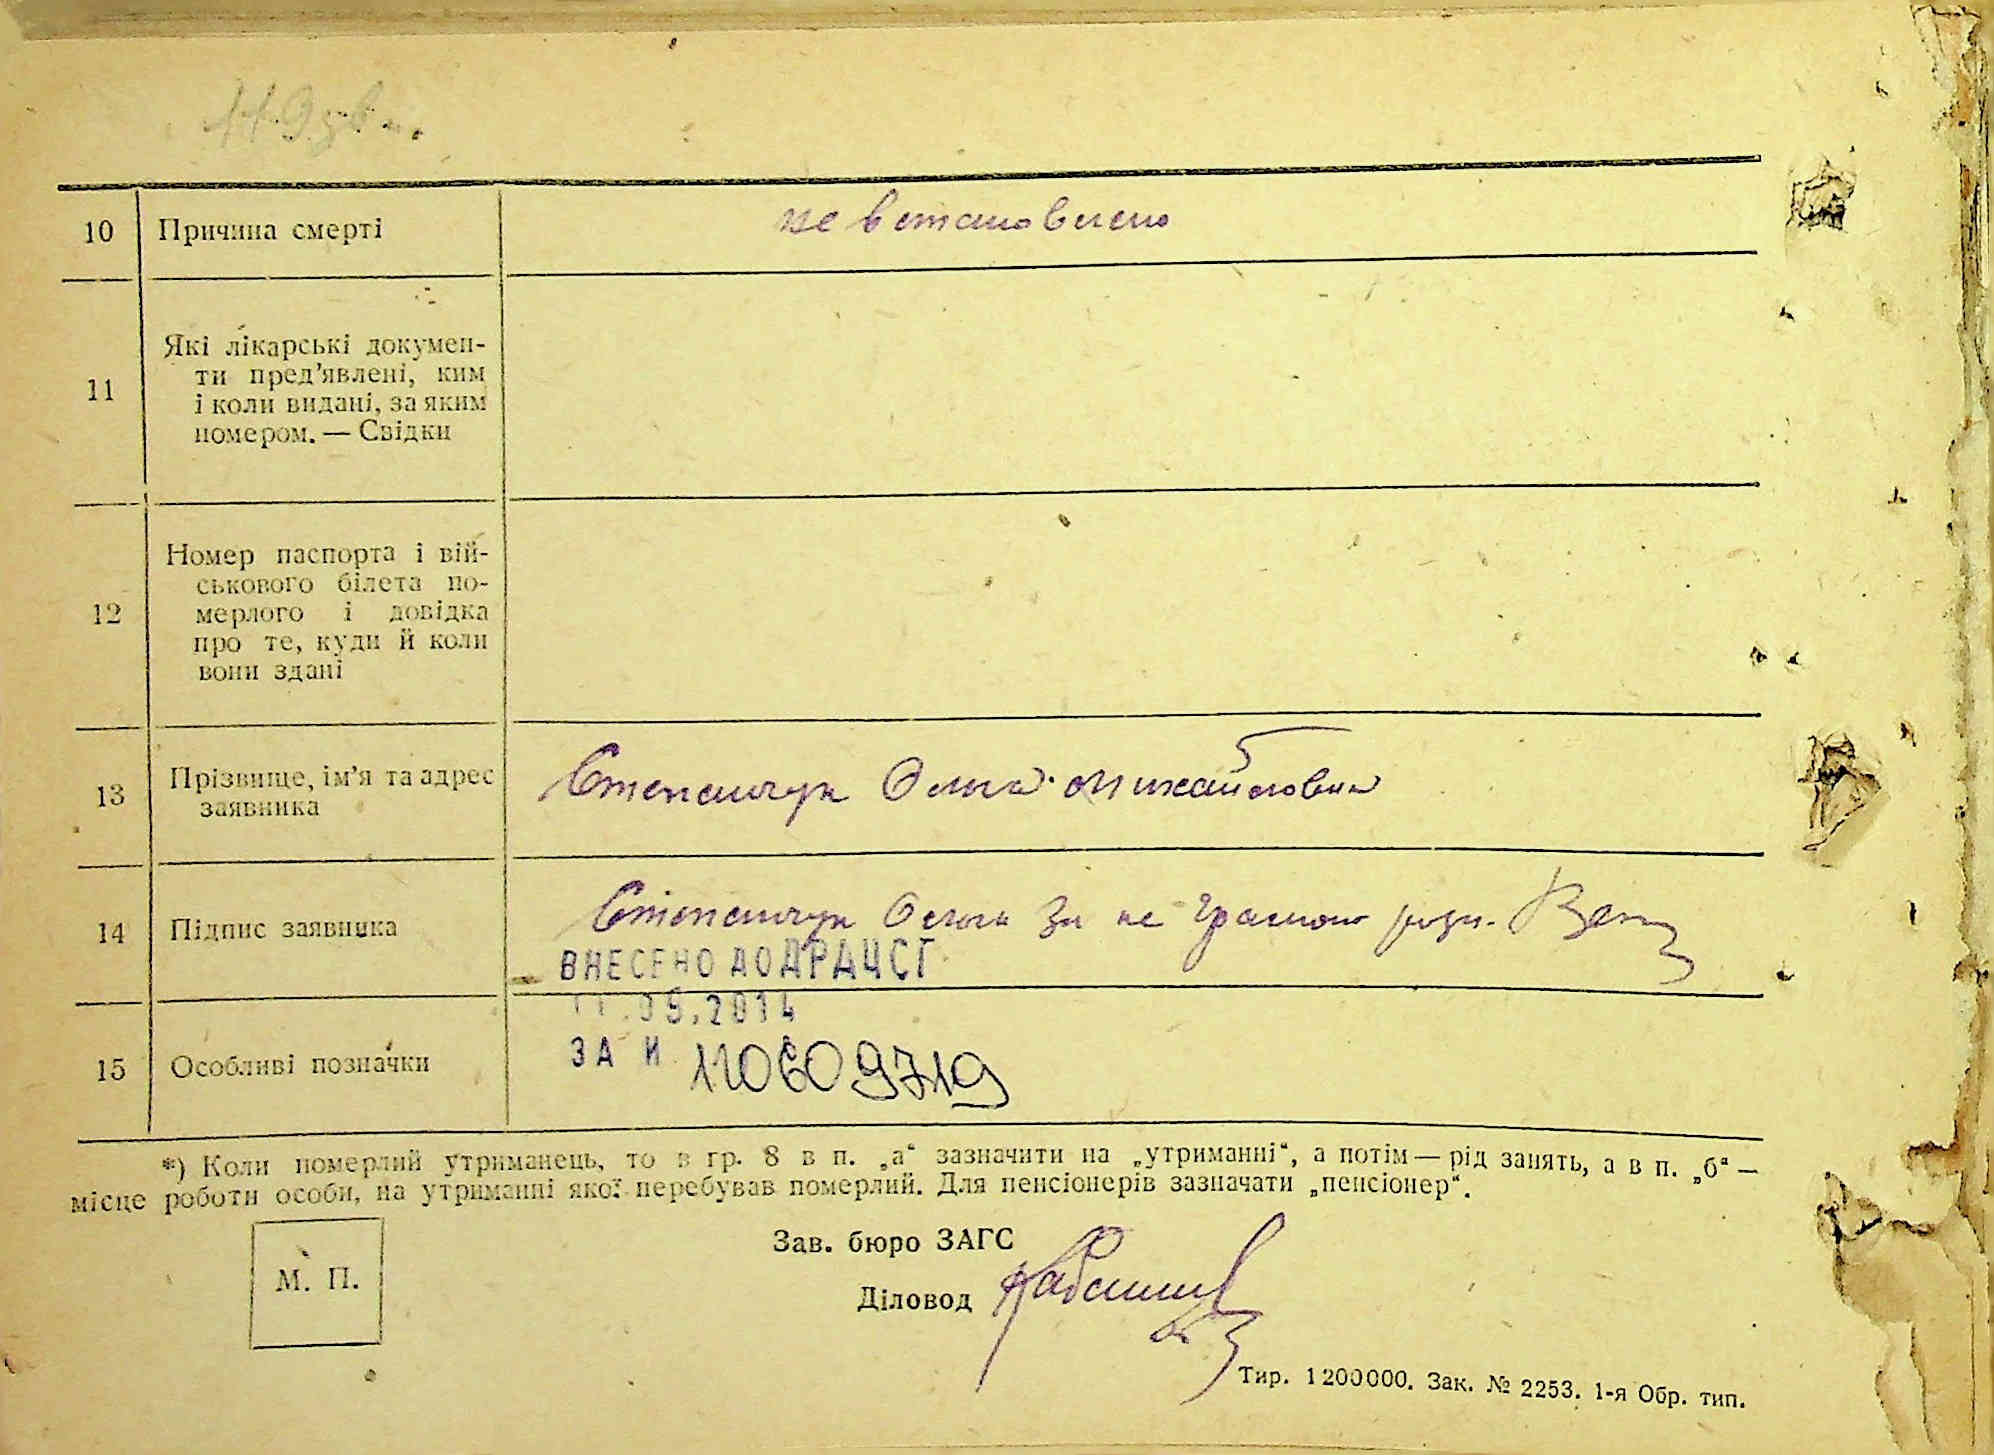 10 Причина смерті не встановлено
11 Які лікарські докумен-
ти пред’явлені, ким
і коли видані, за яким
номером. — Свідки
12 Номер паспорта і вій-
ськового білета по-
мерлого і довідка
про те, куди й коли
вони здані
13 Прізвище, ім’я та адрес
заявника
Степанчук Ольга Михайловна
14 Підпис заявника
Степанчук Ольга За не грамотн
ВНЕСЕНО ДО ДРАЦСГ
.05.2014
15 Особливі позначки
ЗА № 11060 9719
*) Коли померлий утриманець, то в гр. 8 в п. „а“ зазначити на „утриманні“, а потім — рід занять, а в п. „б“ —
місце роботи особи, на утриманні якої перебував померлий. Для пенсіонерів зазначати „пенсіонер“.
М. П.
Зав. бюро ЗАГС
Діловод
Тир. 1200000. Зак. № 2253. 1-я Обр. тип.